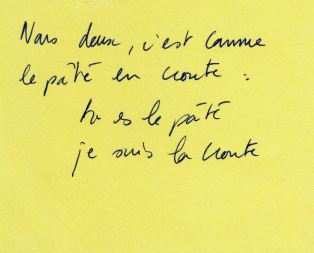 Nous deux, c'est comme
le pâté en croute :
tu es le pâté
je suis la croute